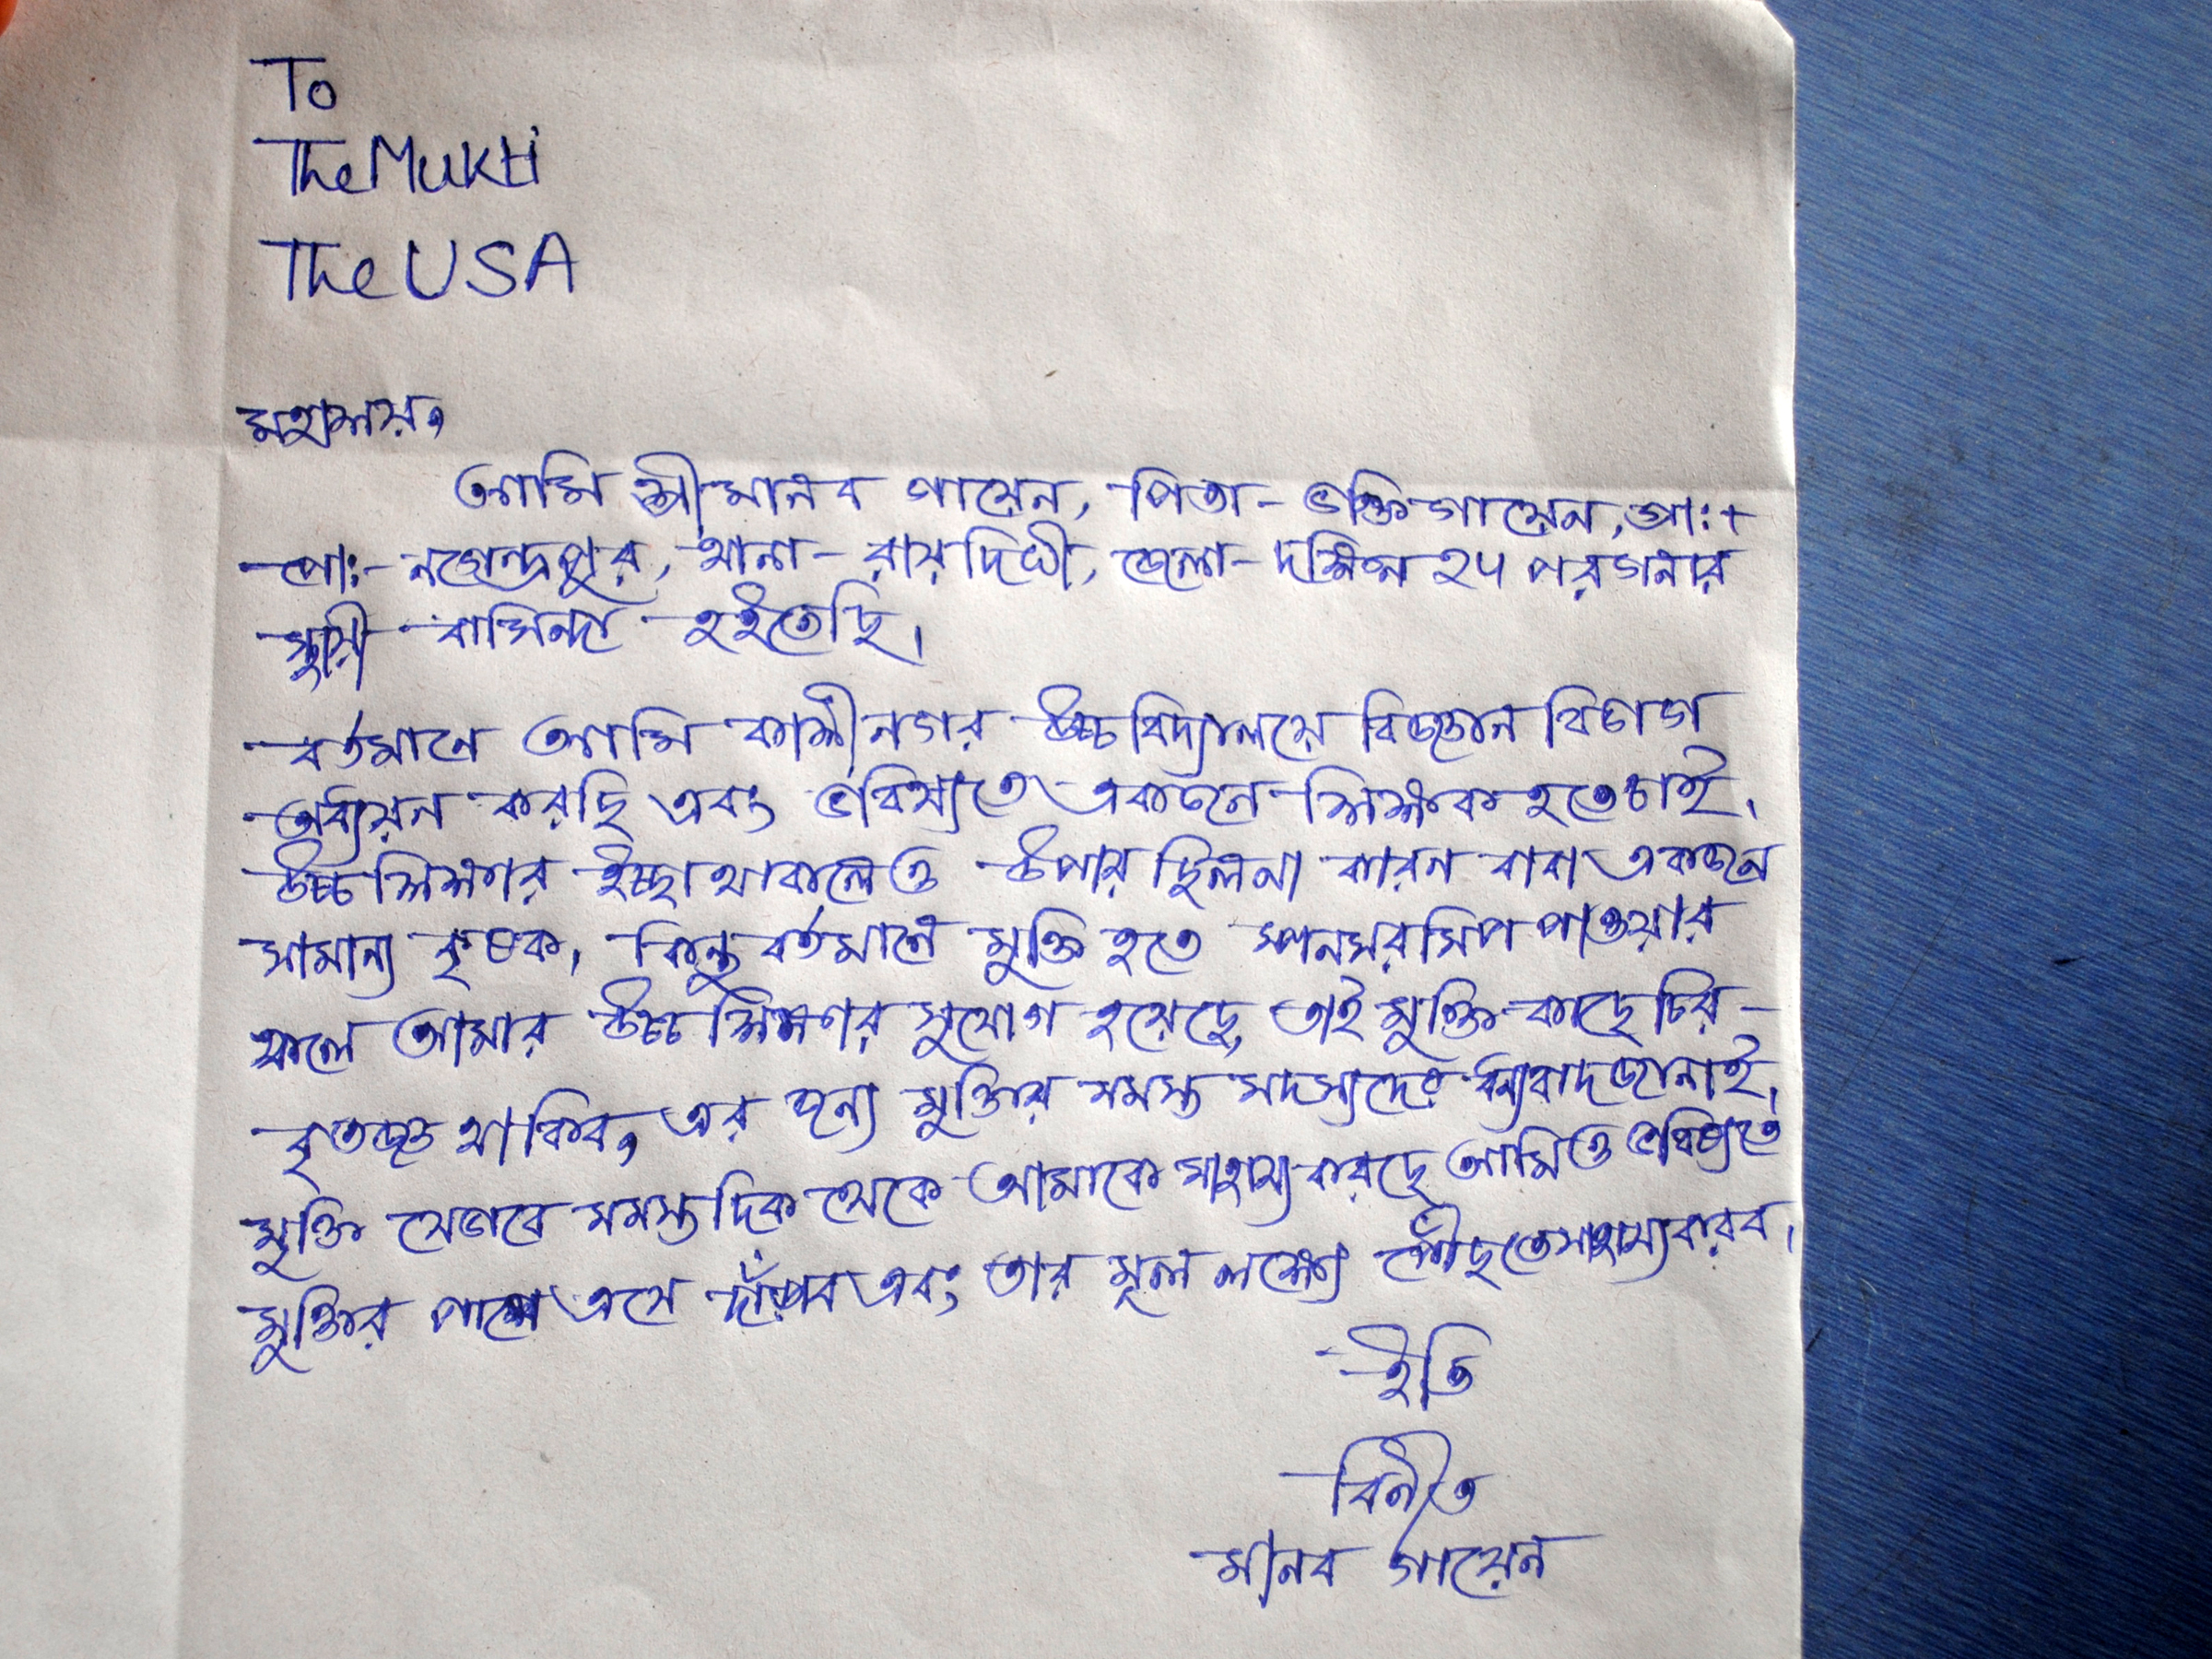 To
The Mukti
The USA
মহাশয়,
আমি শ্রী মানব গায়েন, পিতা- ভক্তি গায়েন, গ্রা:+
পো:- নগেন্দ্রপুর, থানা- রায়দিঘী, জেলা- দক্ষিণ ২৪ পরগনার
স্থায়ী বাসিন্দা হইতেছি।
বর্তমানে আমি কাশীনগর উচ্চবিদ্যালয়ে বিজ্ঞান বিভাগ
অধ্যয়ন করছি এবং ভবিষ্যতে একজনে শিক্ষক হতে চাই।
উচ্চ শিক্ষার ইচ্ছা থাকলেও উপায় ছিলনা কারন বাবা একজনে
সামান্য কৃষক। কিন্তু বর্তমানে মুক্তি হতে স্পনসরসিপ পাওয়ার
ফলে আমার উচ্চ শিক্ষার সুযোগ হয়েছে, তাই মুক্তি কাছে চির-
কৃতজ্ঞ থাকিব, এর জন্য মুক্তির সমস্ত সদস্যদের ধন্যবাদ জানাই।
মুক্তি যেভাবে সমস্ত দিক থেকে আমাকে সাহায্য করছে আমিও ভবিষ্যতে
মুক্তির পাশে এসে দাঁড়াব এবং তার মূল লক্ষ্যে পৌঁছতে সাহায্য করব।
ইতি
বিনীত
মানব গায়েন